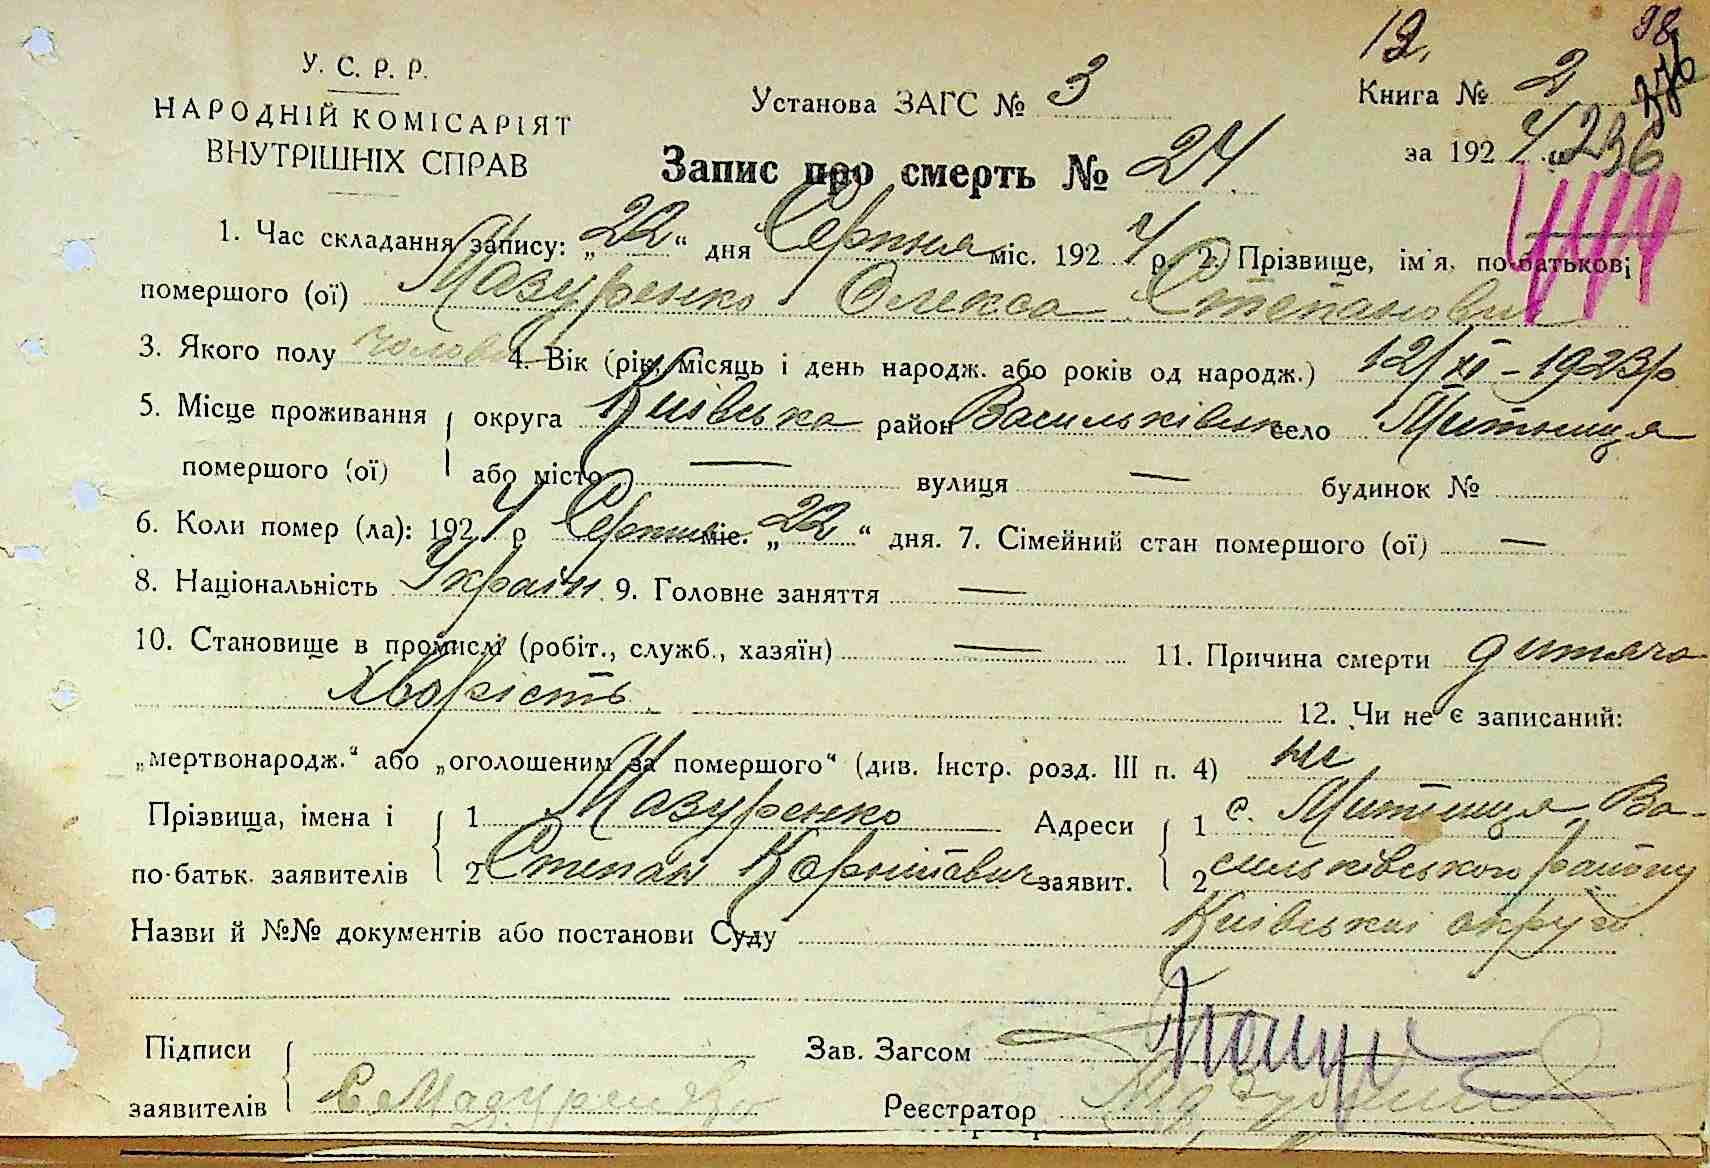 12. 98
376
У. С. Р. Р.
НАРОДНІЙ КОМІСАРІЯТ
ВНУТРІШНІХ СПРАВ
Установа ЗАГС № 3
Книга № 2
за 1924 236
Запис про смерть № 24
1. Час складання запису: „22“ дня Серпня міс. 1924 р. 2. Прізвище, ім'я, по-батькові
помершого (ої) Мазуренко Олекса Степанович
3. Якого полу чолові 4. Вік (рік, місяць і день народж. або років од народж.) 12/XI – 1923 р
5. Місце проживання округа Київська район Васильківськ село Митниця
помершого (ої) або місто — вулиця — будинок №
6. Коли помер (ла): 1924 р Серпня міс. „22“ дня. 7. Сімейний стан помершого (ої) —
8. Національність Україн 9. Головне заняття —
10. Становище в промислі (робіт., служб., хазяїн) — 11. Причина смерти дитяча
хворість 12. Чи не є записаний:
„мертвонародж.“ або „оголошеним за помершого“ (див. Інстр. розд. III п. 4) ні
Прізвища, імена і 1 Мазуренко Адреси 1 с. Митниця Ва-
по-батьк. заявителів 2 Степан заявит. 2 сильківського району
Назви й №№ документів або постанови Суду Київської округи.
Підписи Зав. Загсом
заявителів С Мазуренко Реєстратор